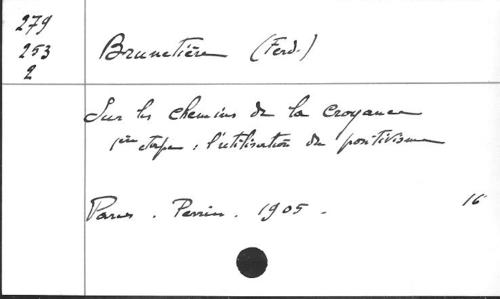 279
253
2
Brunetière (Ferd.)
Sur les chemins de la croyance
1ère étape, l'utilisation du positivisme
Paris. Perrin. 1905.
16